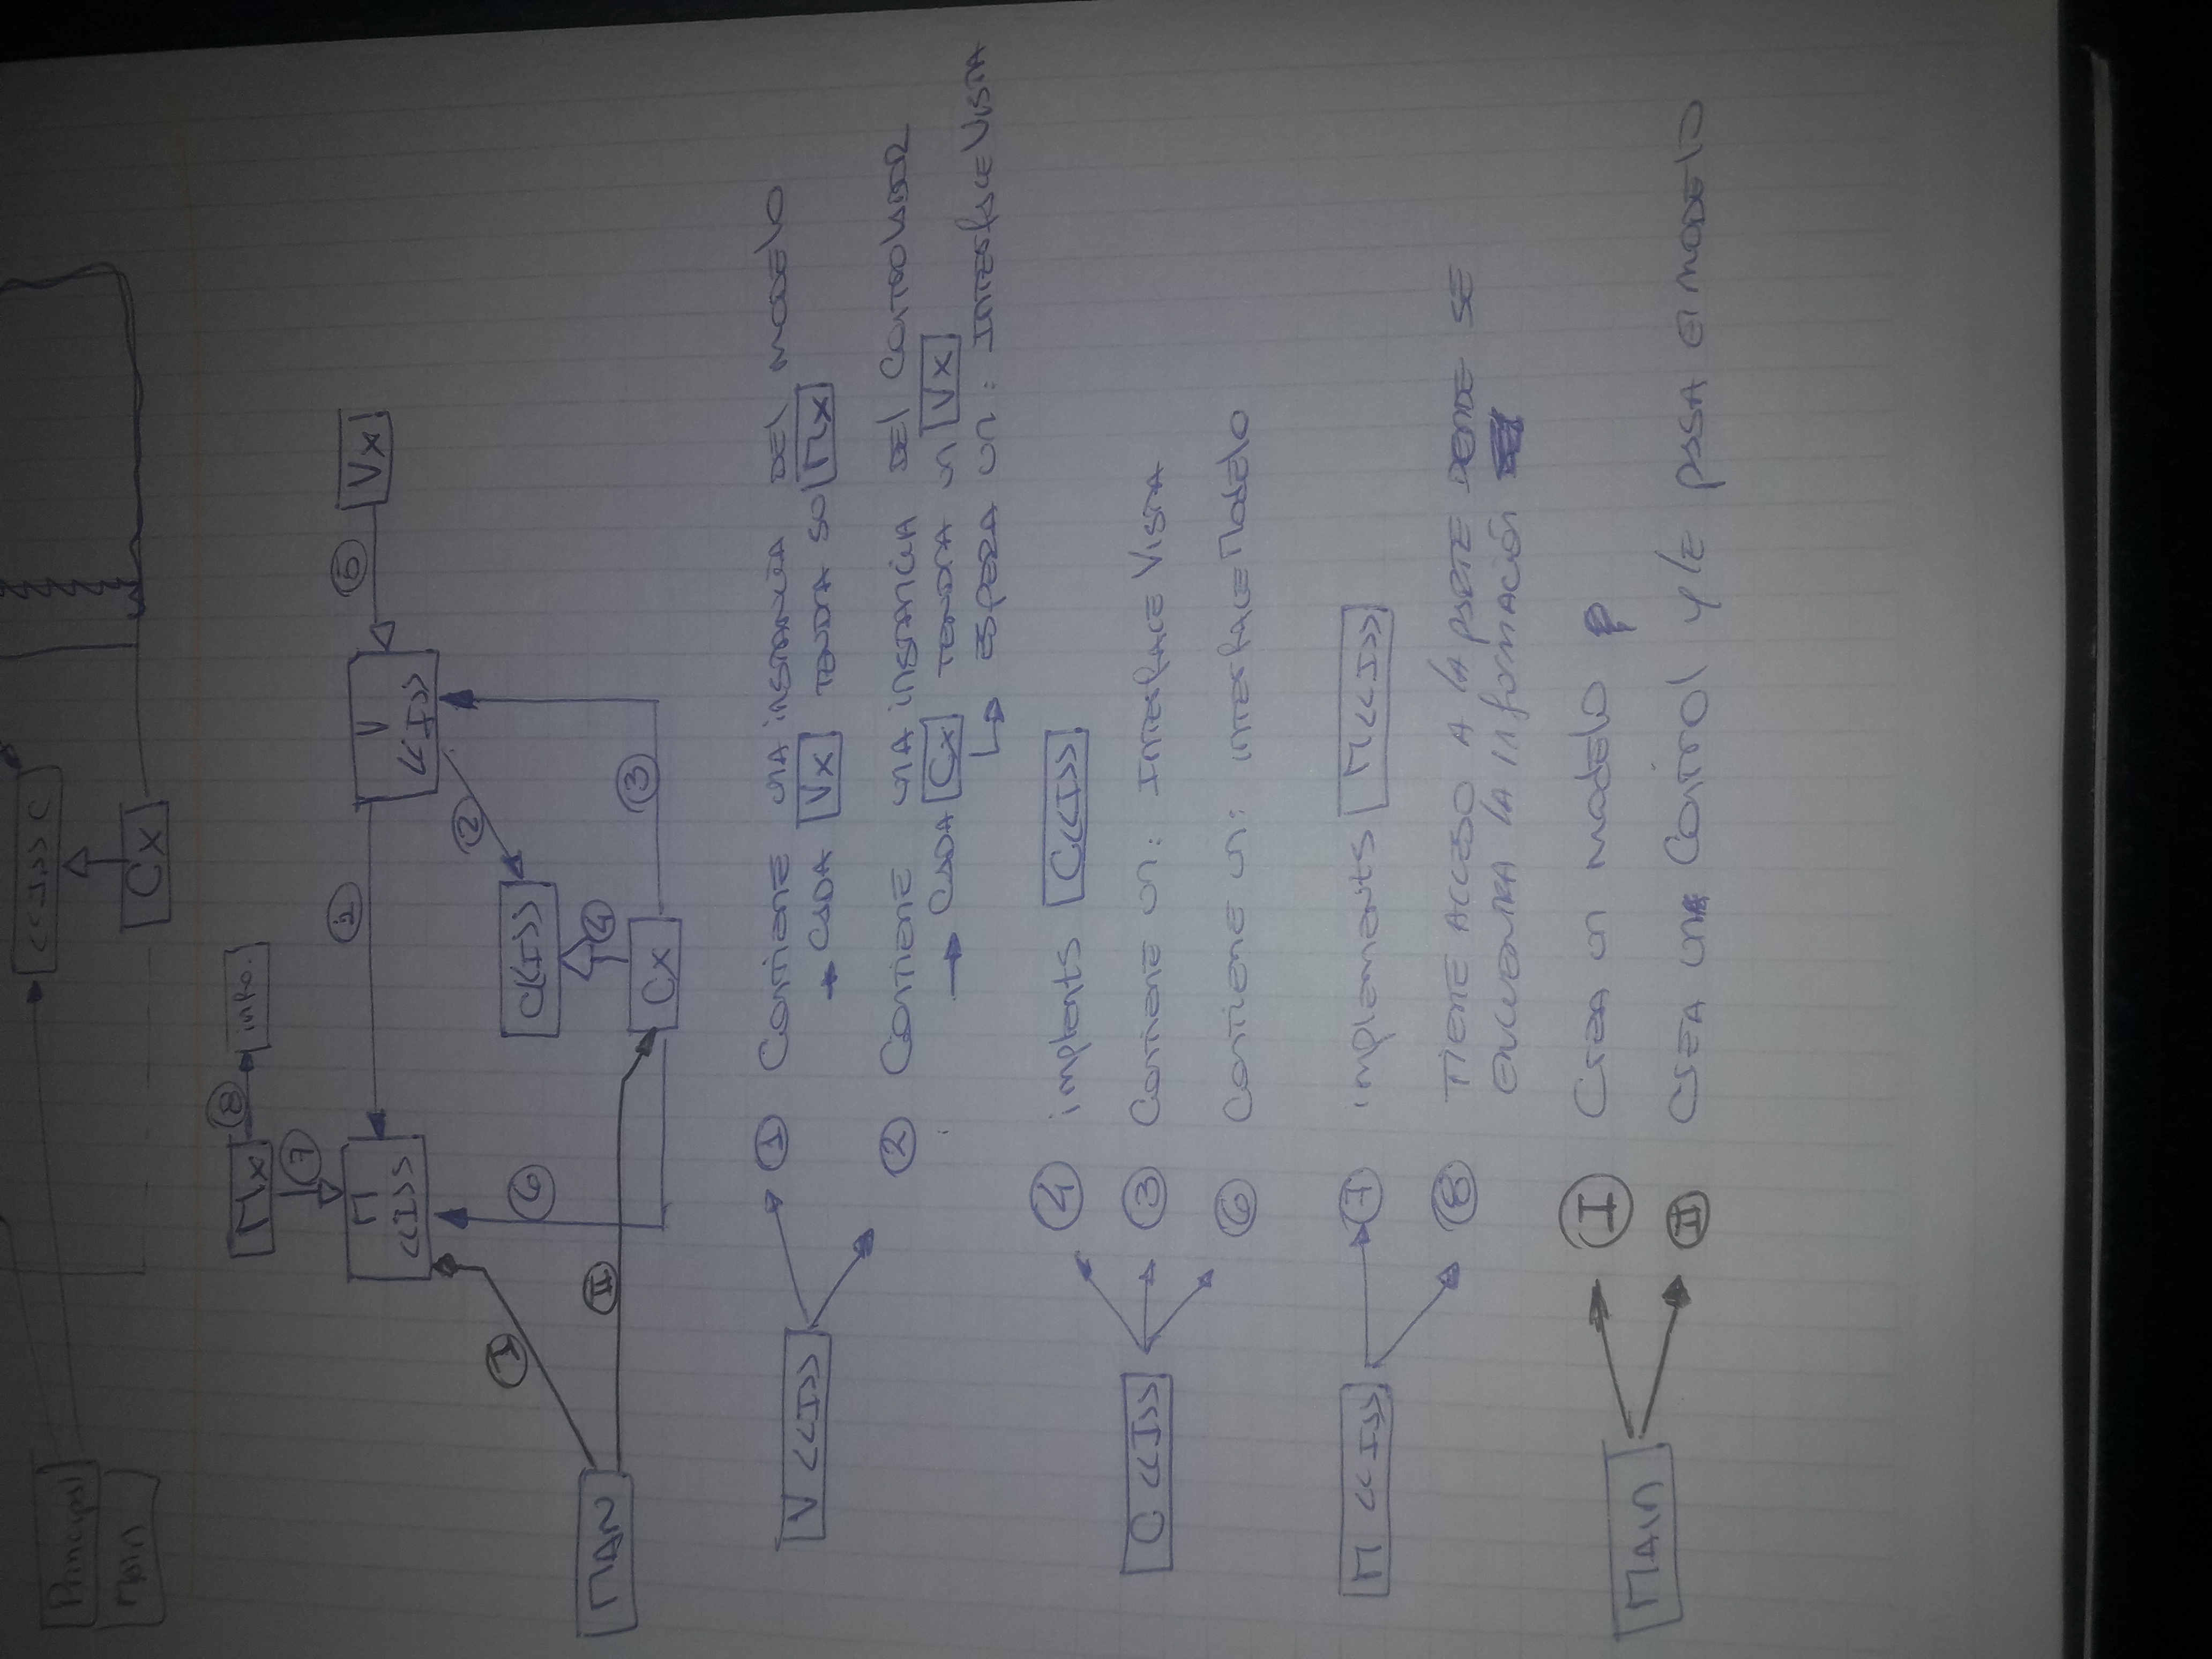 Principal
Main
<<I>> C
Cx
Mx
8
info.
7
M
<<I>>
V
<<I>>
5
Vx
2
I
6
C<<I>>
4
MAIN
II
Cx
3
V <<I>>
1 Contiene una instancia del modelo
→ Cada Vx tendra su Mx
2 Contiene una instancia del controlador
→ Cada Cx tendra un Vx
↳ espera un: InterfaceVista
C <<I>>
4 implents C<<I>>
3 Contiene un: InterfaceVista
6 Contiene un: interfaceModelo
M <<I>>
7 implements M<<I>>
8 Tiene acceso a la parte donde se
encuentra la información
MAIN
I Crea un modelo
II Crea un Control y le pasa el modelo